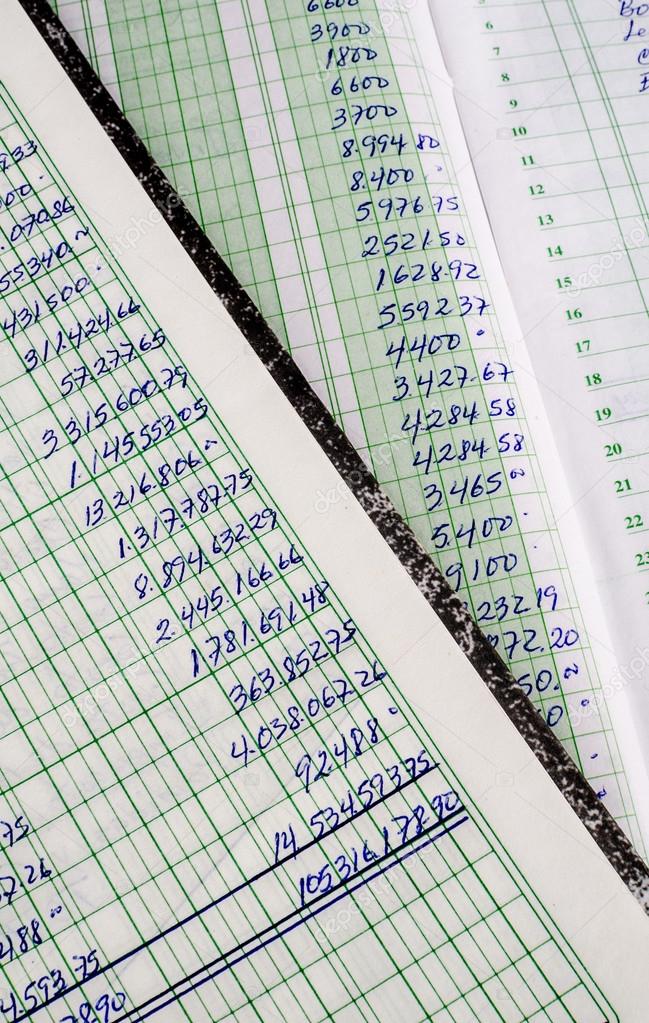 6600
3900
1800
6600
3700
8.994 80
8.400
5976 75
2521.50
1628.92
5592 37
4400
3.427.67
4.284.58
4284.58
3465
5.400
9100
23219
972.20
50.
0
5
6
7
8
9
10
11
12
13
14
15
16
17
18
19
20
21
22
23
933
00.
.070.86
55340.
431500.
311.424.66
57.277.65
3 315.600.79
1.14555305
13.216.806.
1.317.787.75
8.894.632.29
2.445.166 66
1781.691 48
363.85275
4.038.067.26
92488
14 534593 75
105316.178.90
75
7.26
488
4.593 75
78.90